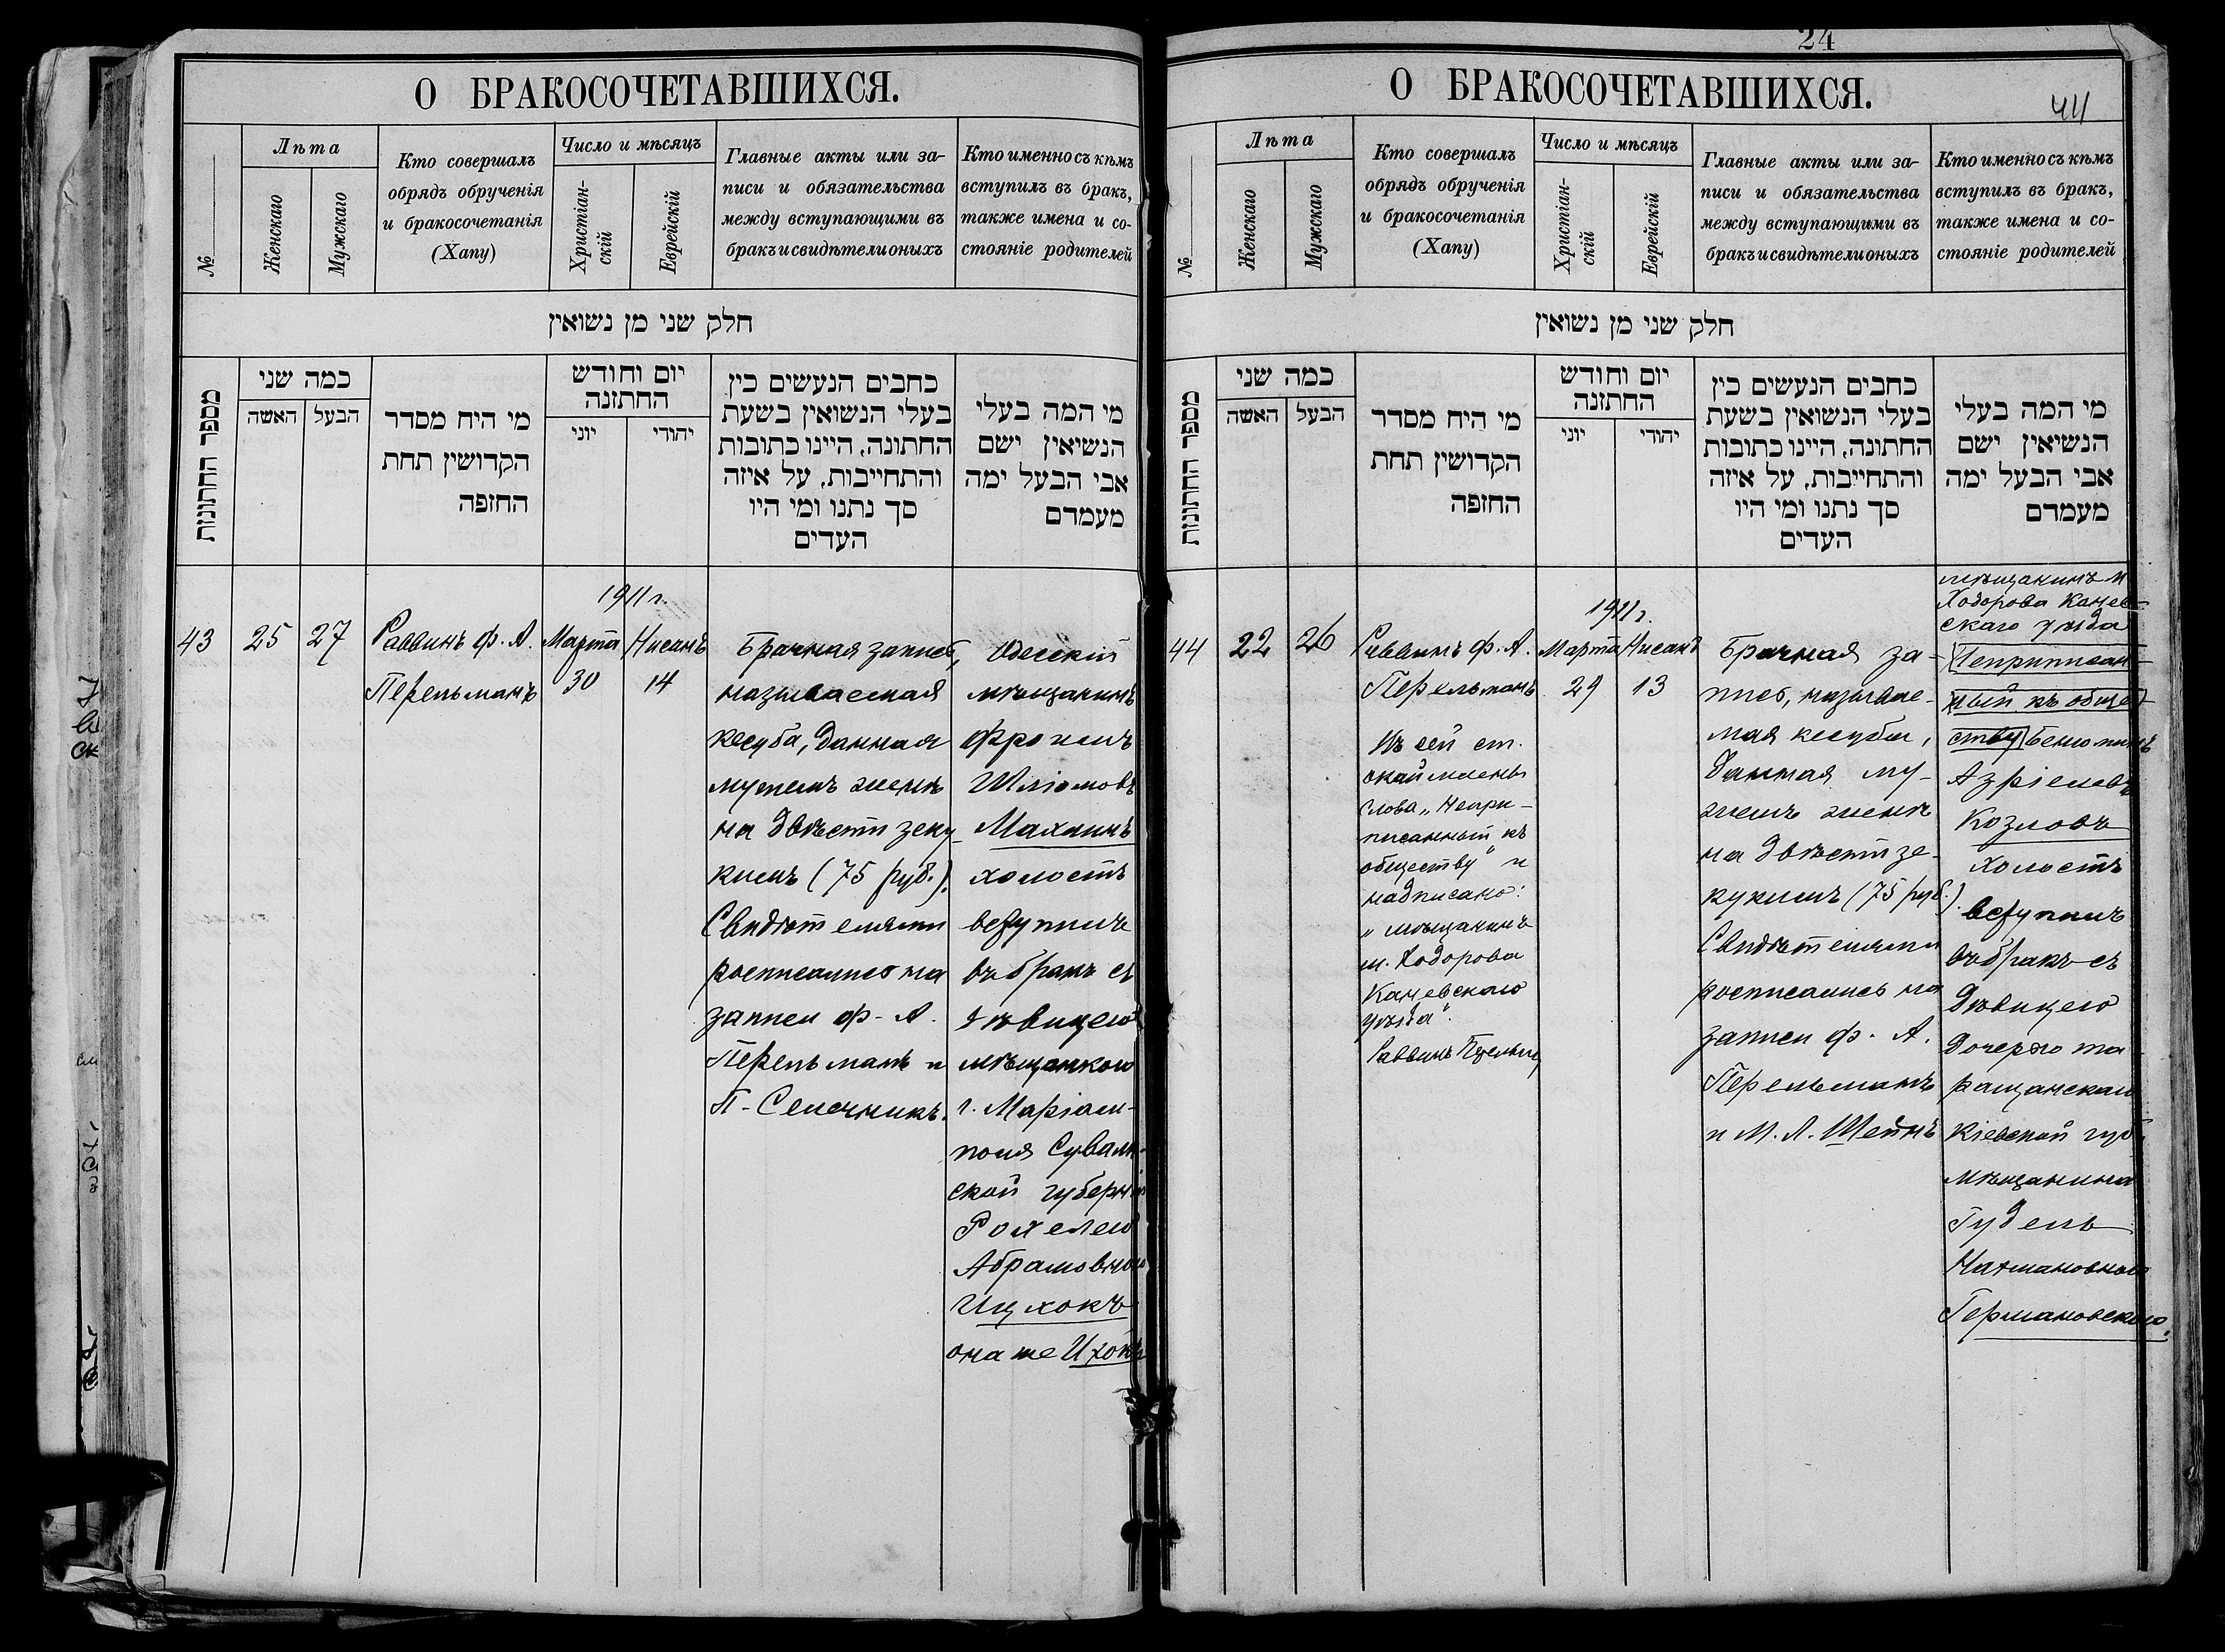 О БРАКОСОЧЕТАВШИХСЯ.
№
Лѣта
Женскаго
Мужскаго
Кто совершалъ
обрядъ обрученія
и бракосочетанія
(Хапу)
Число и мѣсяцъ
Христіан-
скій
Еврейскій
Главные акты или за-
писи и обязательства
между вступающими въ
бракъ и свидѣтели оныхъ
Кто именно съ кѣмъ
вступилъ въ бракъ,
также имена и со-
стояніе родителей
חלק שני מן נשואין
מספר החתונות
כמה שני
האשה
הבעל
מי היח מסדר
הקדושין תחת
החזפה
יום וחודש
החתזנה
יוני
יהודי
כחבים הנעשים כין
בעלי הנשואין בשעת
החתונה, היינו כתובות
והתחייבות, על איזה
סך נתנו ומי היו
העדים
מי המה בעלי
הנשיאין ישם
אבי הבעל ימה
מעמדם
43
25
27
Раввинъ Ф. А.
Перельманъ
1911 г.
Марта
30
Нисанъ
14
Брачная запись,
называемая
кесуба, данная
мужемъ женѣ
на двѣсти зеку
кимъ (75 руб.).
Свидѣтелями
росписались на
записи Ф. А.
Перельманъ и
П. Селечникъ.
Одесскій
мѣщанинъ
Фроимъ
Шліомовъ
Махлинъ
холостъ
вступилъ
въ бракъ съ
дѣвицею
мѣщанкою
г. Маріам-
поля Сувалк-
ской губерніи
Рохелею
Абрамовною
Ицхокъ
она же Ихокъ
24
О БРАКОСОЧЕТАВШИХСЯ.
44
№
Лѣта
Женскаго
Мужскаго
Кто совершалъ
обрядъ обрученія
и бракосочетанія
(Хапу)
Число и мѣсяцъ
Христіан-
скій
Еврейскій
Главные акты или за-
писи и обязательства
между вступающими въ
бракъ и свидѣтели оныхъ
Кто именно съ кѣмъ
вступилъ въ бракъ,
также имена и со-
стояніе родителей
חלק שני מן נשואין
מספר החתונות
כמה שני
האשה
הבעל
מי היח מסדר
הקדושין תחת
החזפה
יום וחודש
החתזנה
יוני
יהודי
כחבים הנעשים כין
בעלי הנשואין בשעת
החתונה, היינו כתובות
והתחייבות, על איזה
סך נתנו ומי היו
העדים
מי המה בעלי
הנשיאין ישם
אבי הבעל ימה
מעמדם
44
22
26
Раввинъ Ф. А.
Перельманъ
Въ сей ст.
окаймлены
слова „Непри-
писанный къ
обществу" и
надписано:
„мѣщанинъ
м. Ходорова
Каневскаго
уѣзда".
Раввинъ
1911 г.
Марта
29
Нисанъ
13
Брачная за-
пись, называе-
мая кесуба,
данная му-
жемъ женѣ
на двѣсти зе-
кукимъ (75 руб.)
Свидѣтелями
росписались на
записи Ф. А.
Перельманъ
и М. Л. Шейнъ
мѣщанинъ м.
Ходорова Канев-
скаго уѣзда
Неприписан-
ный къ обще-
ству Беніоминъ
Азріелевъ
Козловъ
холостъ
вступилъ
въ бракъ съ
дѣвицею
дочерью та-
ращанскаго
Кіевской губ.
мѣщанина
Гудель
Нахмановною
Германовскою.